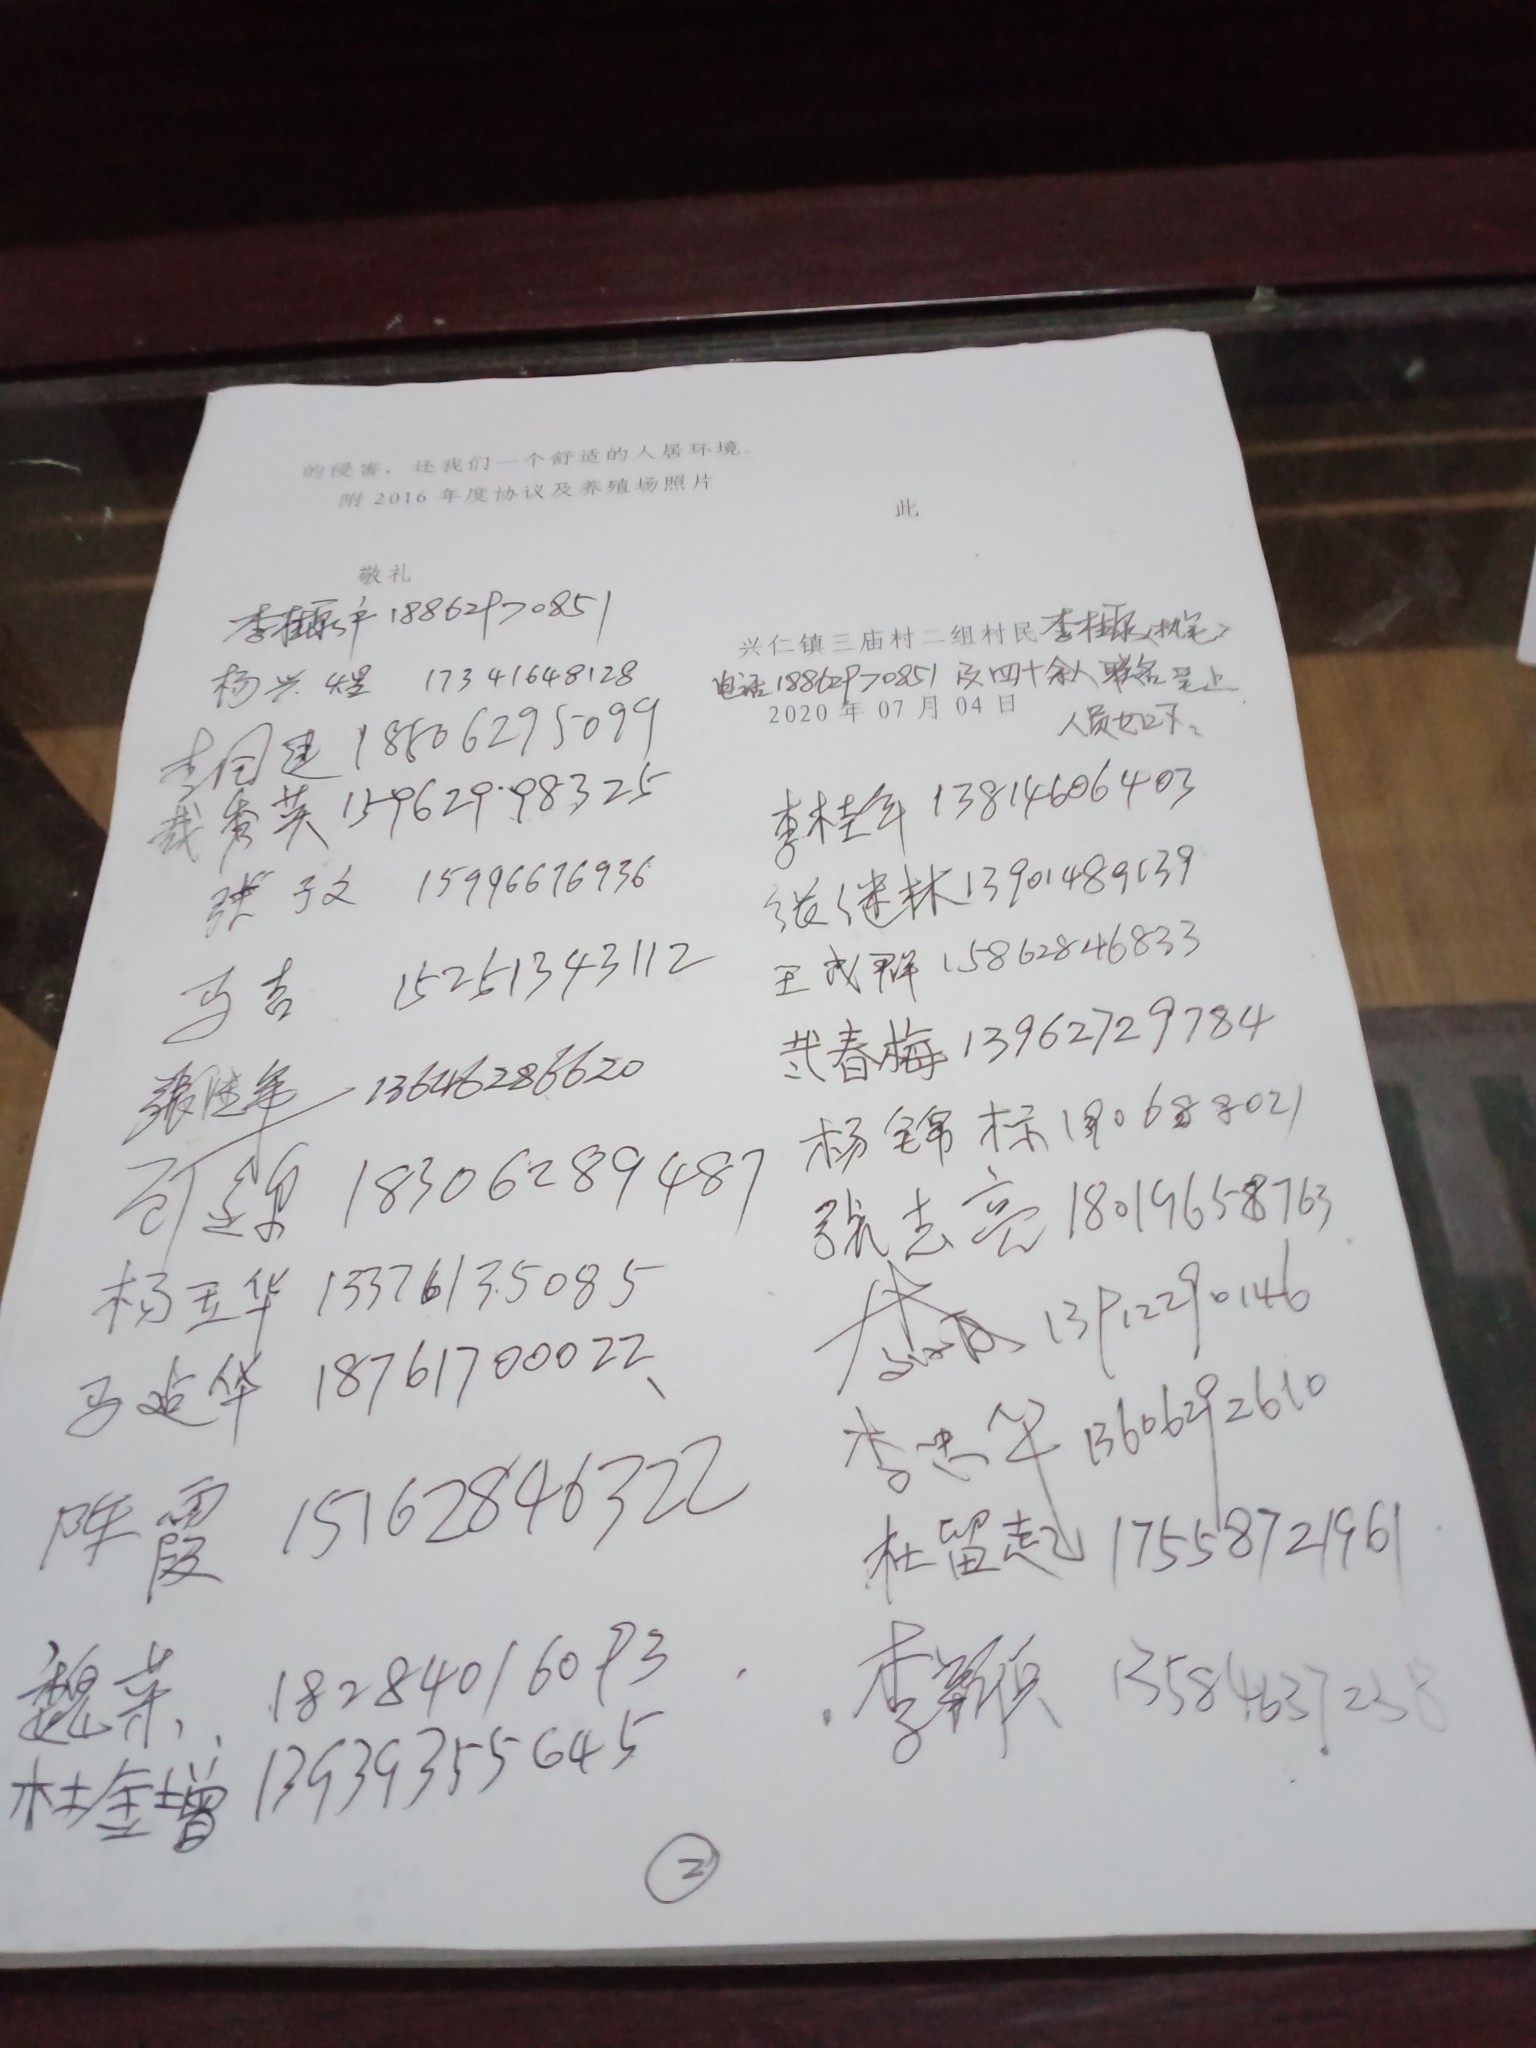 的侵害，还我们一个舒适的人居环境。
附 2016 年度协议及养殖场照片
此
敬礼
兴仁镇三庙村二组村民李桂 (执笔)
电话18862970851 及四十余人联名呈上
2020 年 07 月 04 日
人员如下:
李桂 18862970851
杨兴煌 17341648128
李国建 18506295099
秀英 15962998325
张于文 15996676936
马吉 15251343112
張 13646286620
18306289487
杨玉华 13376135085
马建华 18761700022、
陈霞 15162846322
魏荣 18284016093
杜金增 13939355645
李桂年 13814606403
张继林 13901489639
王成群 15862846833
春梅 13962729784
杨锦标
張志亮 18019658763
13912290146
李忠华 13606292610
杜留起 17558721961
李颖 13584637238
②